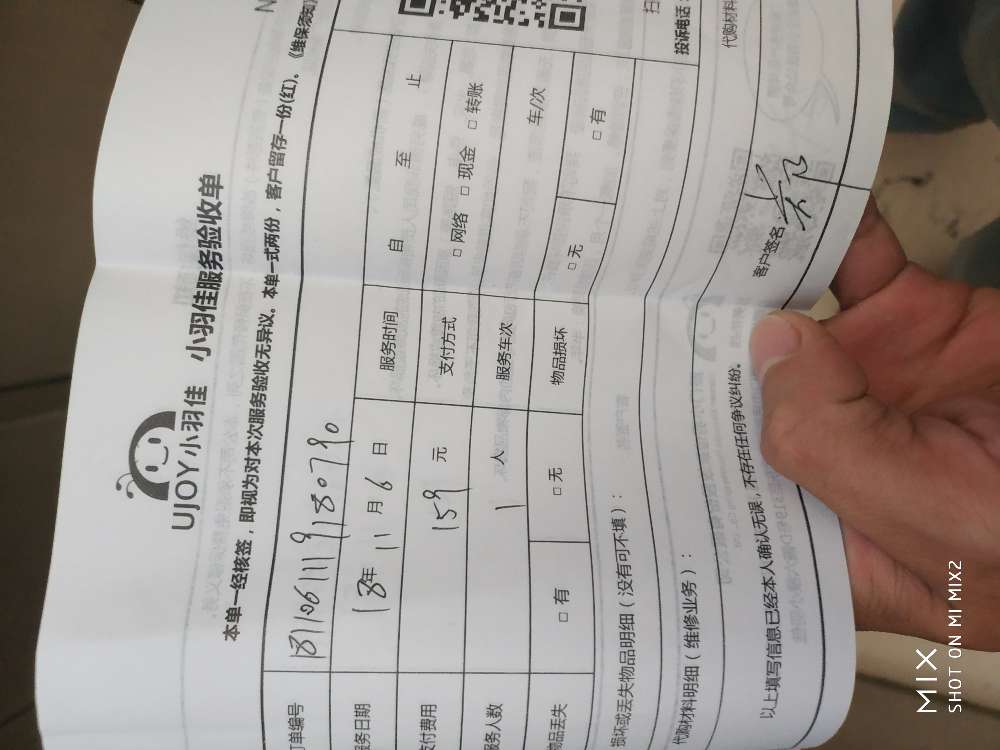 UJOY小羽佳 小羽佳服务验收单
本单一经核签，即视为对本次服务验收无异议。本单一式两份，客户留存一份(红)。《维保须知》
订单编号 1811061119180790
服务日期 18年 11 月 6 日 服务时间 自 至 止
支付费用 159 元 支付方式 □ 网络 □ 现金 □ 转账
服务人数 1 人 服务车次 车/次
物品丢失 □ 有 □ 无 物品损坏 □ 无 □ 有
损坏或丢失物品明细（没有可不填）：
代购材料明细（维修业务）：
代购材料
以上填写信息已经本人确认无误，不存在任何争议纠纷。 客户签名：
投诉电话：
扫
MIX
SHOT ON MI MIX2